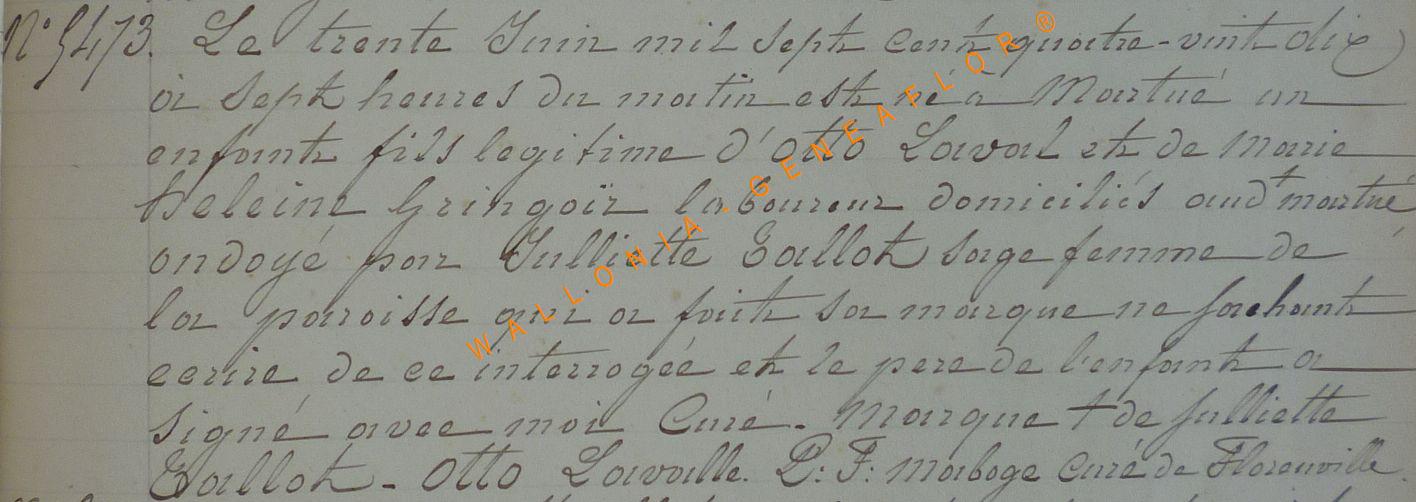 N° 5473. Le trente Juin mil sept cent quatre-vint dix
à sept heures du matin est né à Martué un
enfant fils legitime d'Otto Laval et de Marie
heleine Gringoir laboureur domiciliés aud t martué
ondoyé par Julliette Tallot sage femme de
la paroisse qui a fait sa marque ne sachant
ecrire de ce interrogée et le pere de l'enfant a
signé avec moi Curé. Marque + de Julliette
Tallot - Otto Lavalle. P: F: Maboge Curé de Florenville
WALLONIA - GENEAFLOR®